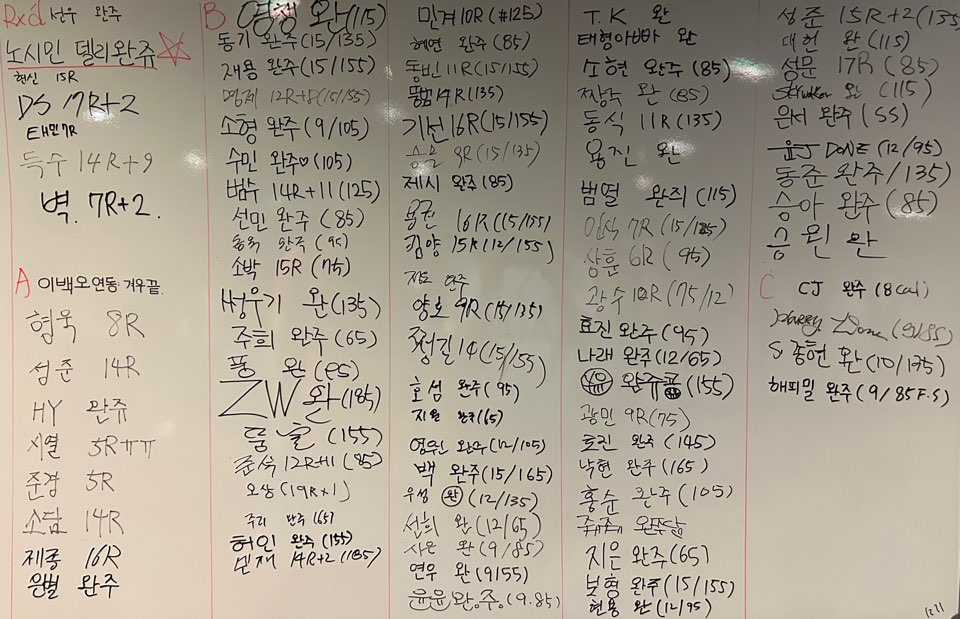 Rxd 선우 완주
노시민 델리완쥬
현신 15R
DS 17R+2
태민 7R
득수 14R+9
벽. 7R+2.
A 이백오연동 겨우끝.
형욱 8R
성준 14R
HY 완쥬
시열 5Rㅠㅠ
준겸 5R
소담 14R
제종 16R
은별 완주
B 영청 완(115)
동기 완주(15/135)
재용 완주(15/155)
명계 12R+8(15/155)
소형 완주(9/105)
수민 완주♡(105)
범수 14R+11(125)
선민 완주(85)
완주(95)
소박 15R(75)
형우기 완(135)
주희 완주(65)
풍 완(85)
ZW 완(185)
(155)
준석 12R+1(85)
오상(19R×1)
주리 완주(65)
허인 완주(155)
민재 14R+2(185)
민계 10R(#125)
혜연 완주(85)
동빈 11R(15/155)
뚱범 14R(135)
기선 16R(15/155)
9R(15/135)
제시 완주(85)
16R(15/155)
킴양 15R(12/155)
완주
양호 9R(15/135)
쩡길 14(15/155)
호섬 완주(95)
지원 완주(65)
영우 완주(12/105)
백 완주(15/165)
우성 완(12/135)
선희 완(12/65)
시은 완(9/85)
연우 완(9155)
윤윤 완.주.(9.85)
T.K 완
태형아빠 완
소현 완주(85)
짱수 완(85)
동식 11R(135)
용진 완
범열 완죄(115)
인식 7R(15/185)
상훈 6R(95)
광수 10R(75/12)
효진 완주(95)
나래 완주(12/65)
완쥬(155)
광민 9R(75)
효진 완주(145)
낙현 완주(165)
홍순 완주(105)
지은 완주(65)
보형 완주(15/155)
현용 완(12/95)
성준 15R+2(135)
대현 완(115)
성문 17R(85)
완(115)
완서 완주(55)
윤J DONE(12/95)
동준 완주/135)
승아 완주(85)
승원 완
C CJ 완주(8cal)
Harry Done(9/85)
종현 완(10/135)
해피밀 완주(9/85F.S)